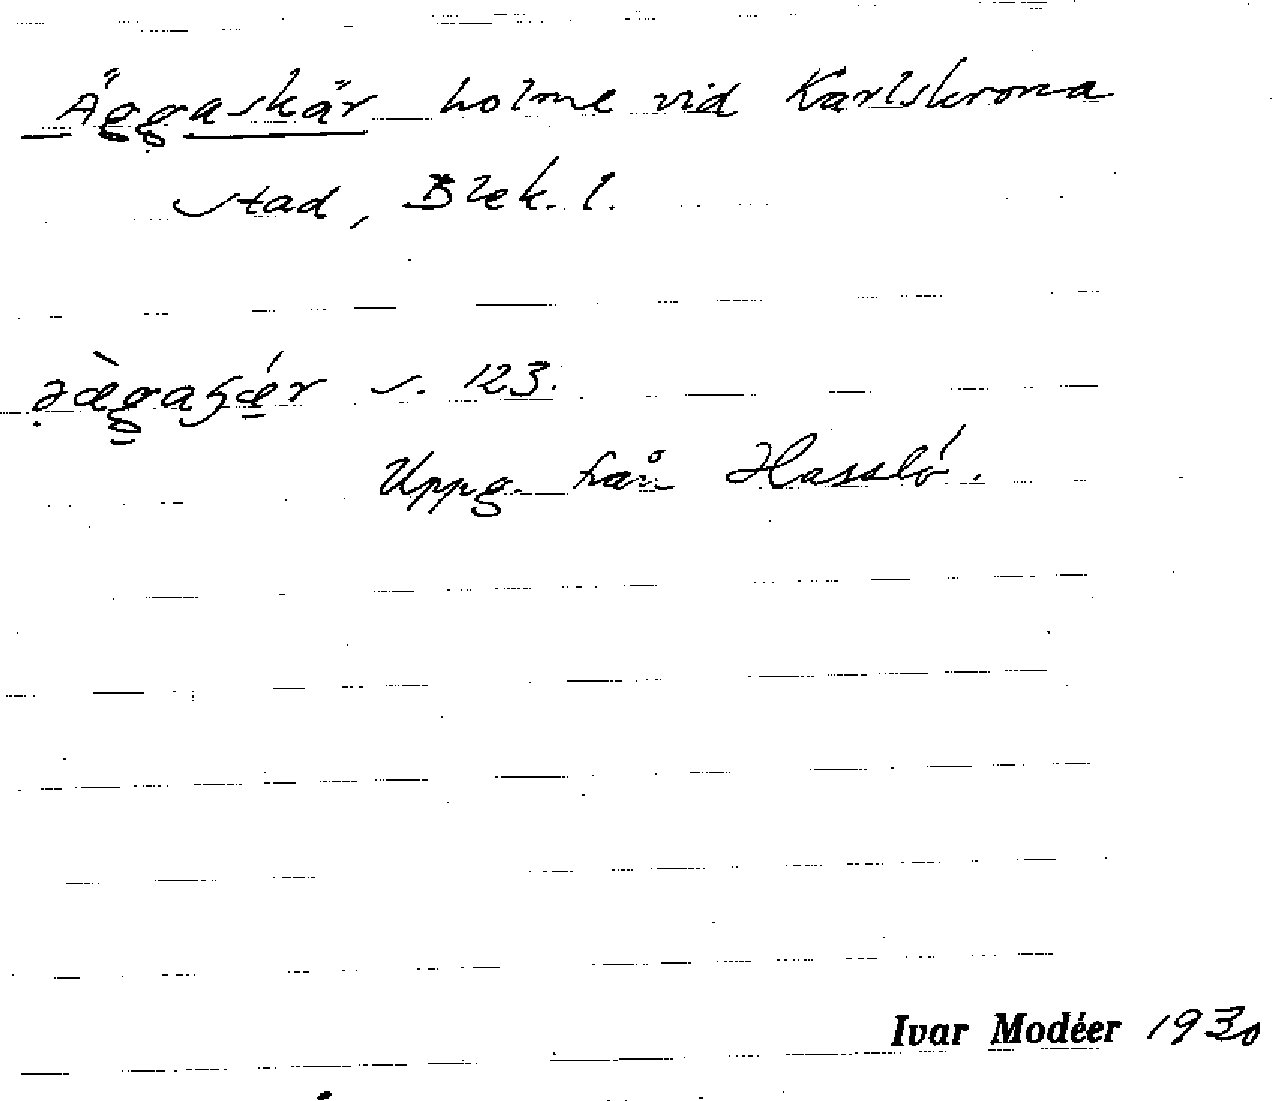 Äggaskär holme vid Karlskrona
stad, Blek. l.
s. 123.
Uppg. från Hasslö.
Ivar Modéer 1930